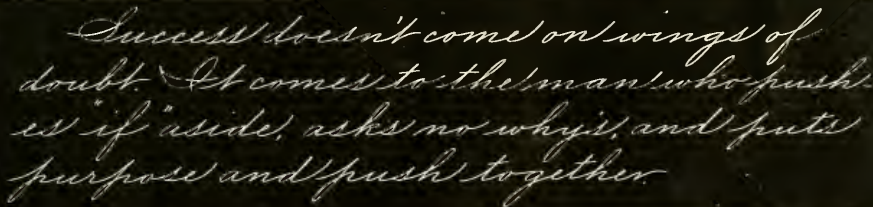 Success doesn't come on wings of
doubt. It comes to the man who push-
es "if" aside, asks no why's, and puts
purpose and push together.